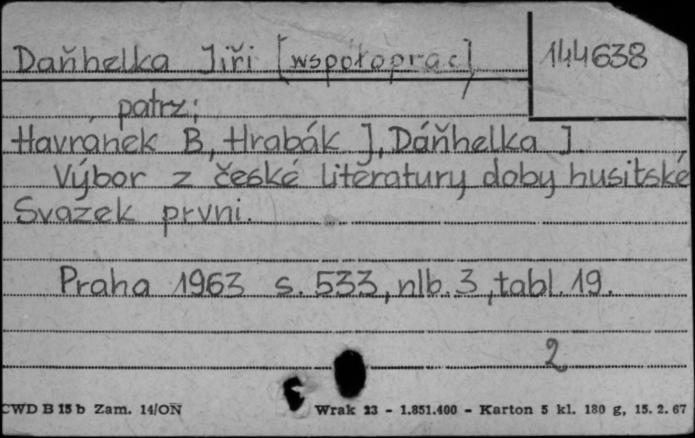 Daňhelka Jiři [wspołoprac] 144638
patrz;
Havránek B, Hrabák J, Dáňhelka J.
Výbor z české literatury doby husitské
Svazek prvni.
Praha 1963 s. 533, nlb. 3, tabl. 19.
2
CWD B 15 b Zam. 14/ON Wrak 23 - 1.851.400 - Karton 5 kl. 180 g, 15. 2. 67